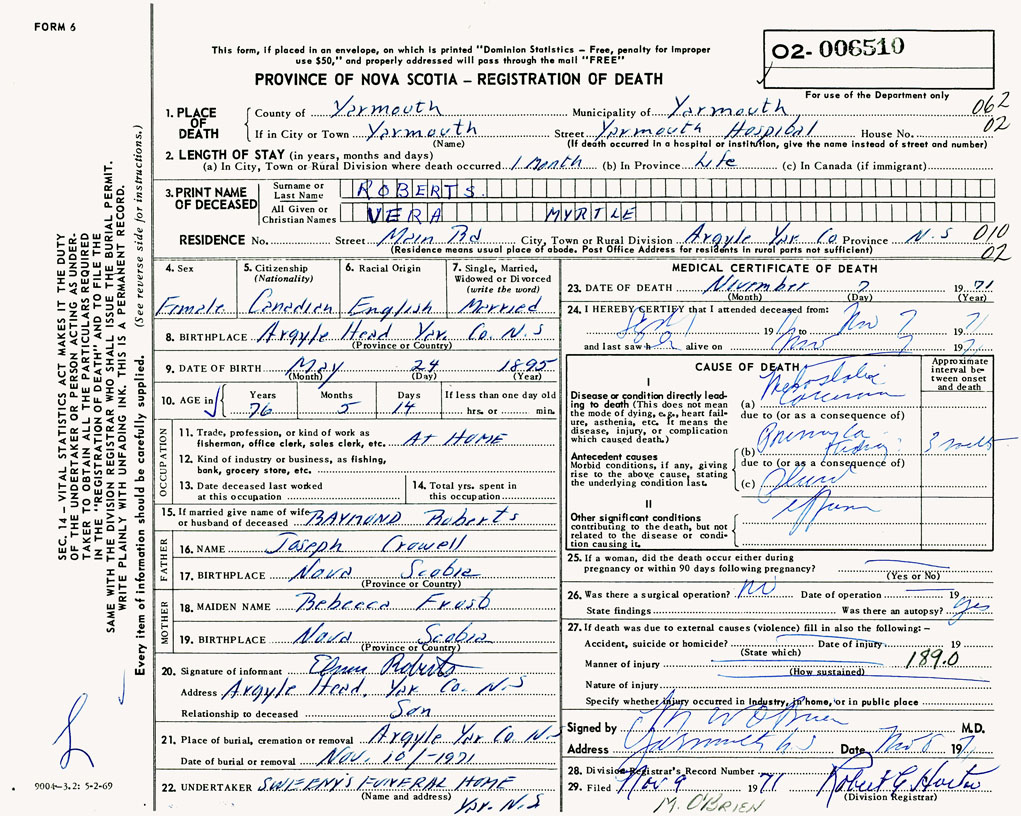 FORM 6
This form, if placed in an envelope, on which is printed "Dominion Statistics – Free, penalty for improper
use $50," and properly addressed will pass through the mail "FREE"
O2- 006510
PROVINCE OF NOVA SCOTIA – REGISTRATION OF DEATH
For use of the Department only
1. PLACE OF DEATH
County of Yarmouth Municipality of Yarmouth 062
If in City or Town Yarmouth Street Yarmouth Hospital House No. 02
(Name) (If death occurred in a hospital or institution, give the name instead of street and number)
2. LENGTH OF STAY (in years, months and days)
(a) In City, Town or Rural Division where death occurred 1 Month (b) In Province Life (c) In Canada (if immigrant)
3. PRINT NAME OF DECEASED
Surname or Last Name ROBERTS
All Given or Christian Names VERA MYRTLE
RESIDENCE No. Street Main Rd City, Town or Rural Division Argyle Yar. Co. Province N.S 010
(Residence means usual place of abode. Post Office Address for residents in rural parts not sufficient) 02
4. Sex 5. Citizenship (Nationality) 6. Racial Origin 7. Single, Married, Widowed or Divorced (write the word)
Female Canadian English Married
8. BIRTHPLACE Argyle Head Yar. Co. N.S
(Province or Country)
9. DATE OF BIRTH May 24 1895
(Month) (Day) (Year)
10. AGE in Years Months Days If less than one day old
76 5 14 hrs. or min.
OCCUPATION
11. Trade, profession, or kind of work as
fishermen, office clerk, sales clerk, etc. AT HOME
12. Kind of industry or business, as fishing,
bank, grocery store, etc.
13. Date deceased last worked
at this occupation
14. Total yrs. spent in
this occupation
15. If married give name of wife
or husband of deceased RAYMOND Roberts
FATHER
16. NAME Joseph Crowell
17. BIRTHPLACE Nova Scotia
(Province or Country)
MOTHER
18. MAIDEN NAME Rebecca Frost
19. BIRTHPLACE Nova Scotia
(Province or Country)
20. Signature of informant Roberts
Address Argyle Head, Yar. Co. N.S
Relationship to deceased Son
21. Place of burial, cremation or removal Argyle Yar Co. N.S
Date of burial or removal Nov. 10/-1971
22. UNDERTAKER SWEENY'S FUNERAL HOME
(Name and address) Yar. N.S
MEDICAL CERTIFICATE OF DEATH
23. DATE OF DEATH November 7 1971
(Month) (Day) (Year)
24. I HEREBY CERTIFY that I attended deceased from:
19 to Nov 7 1971
and last saw h alive on Nov 7 1971
CAUSE OF DEATH
Approximate interval between onset and death
I
Disease or condition directly leading
to death (This does not mean
the mode of dying, e.g., heart failure,
asthenia, etc. It means the
disease, injury, or complication
which caused death.)
(a) Metastatic
Carcinoma
due to (or as a consequence of)
Antecedent causes
Morbid conditions, if any, giving
rise to the above cause, stating
the underlying condition last.
(b) Primary Ca Kidney 3
due to (or as a consequence of)
(c)
II
Other significant conditions
contributing to the death, but not
related to the disease or condition
causing it.
25. If a woman, did the death occur either during
pregnancy or within 90 days following pregnancy?
(Yes or No)
26. Was there a surgical operation? No Date of operation 19
State findings Was there an autopsy? Yes
27. If death was due to external causes (violence) fill in also the following: –
Accident, suicide or homicide? Date of injury 19
(State which)
Manner of injury 189.0
(How sustained)
Nature of injury
Specify whether injury occurred in Industry, in home, or in public place
Signed by M W O'Brien M.D.
Address Yarmouth N.S Date Nov 8 1971
28. Division Registrar's Record Number
29. Filed Nov 9 1971 Robert G
(Division Registrar)
M. O'BRIEN
SEC. 14 – VITAL STATISTICS ACT MAKES IT THE DUTY
OF THE UNDERTAKER OR PERSON ACTING AS UNDER-
TAKER TO OBTAIN ALL THE PARTICULARS REQUIRED
IN THE "REGISTRATION OF DEATH" AND TO FILE THE
SAME WITH THE DIVISION REGISTRAR WHO SHALL ISSUE THE BURIAL PERMIT.
WRITE PLAINLY WITH UNFADING INK. THIS IS A PERMANENT RECORD.
Every item of information should be carefully supplied. (See reverse side for instructions.)
9004–3.2: 5-2-69